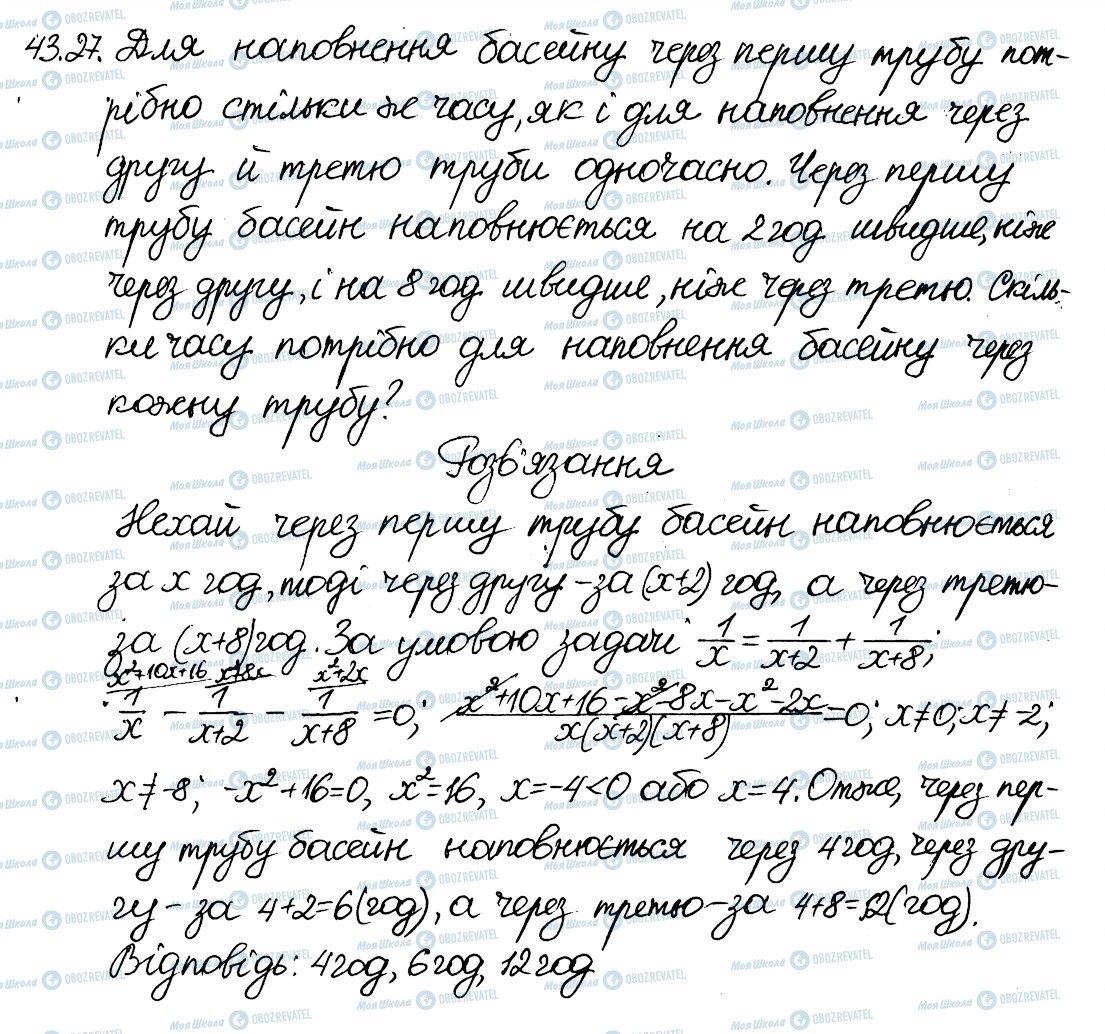 43.27. Для наповнення басейну через першу трубу пот-
рібно стільки ж часу, як і для наповнення через
другу й третю труби одночасно. Через першу
трубу басейн наповнюється на 2 год швидше, ніж
через другу, і на 8 год швидше, ніж через третю. Скіль-
ки часу потрібно для наповнення басейну через
кожну трубу?
Розв'язання
Нехай через першу трубу басейн наповнюється
за x год, тоді через другу – за (x+2) год, а через третю-
за (x+8) год. За умовою задачі 1/x = 1/(x+2) + 1/(x+8);
x²+10x+16 x²+8x x²+2x
1/x − 1/(x+2) − 1/(x+8) = 0; (x²+10x+16−x²−8x−x²−2x)/(x(x+2)(x+8)) = 0; x≠0; x≠-2;
x≠-8; -x²+16=0, x²=16, x=-4<0 або x=4. Отже, через пер-
шу трубу басейн наповнюється через 4 год, через дру-
гу – за 4+2=6(год), а через третю – за 4+8=12(год).
Відповідь: 4 год, 6 год, 12 год